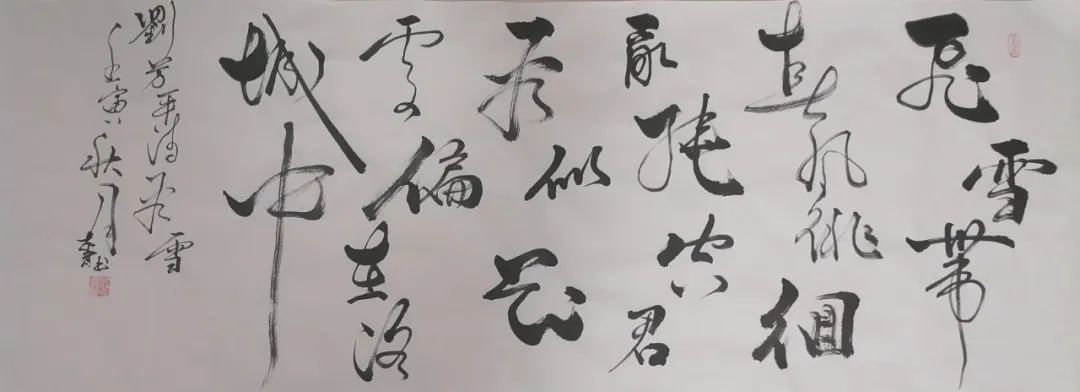 飛雪帶
春風徘徊
亂繞空君
看似花
處偏在洛
城中
劉方平詩春雪
壬寅秋月